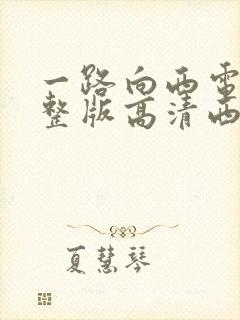 一路向西電
整版高清西
夏慧琴